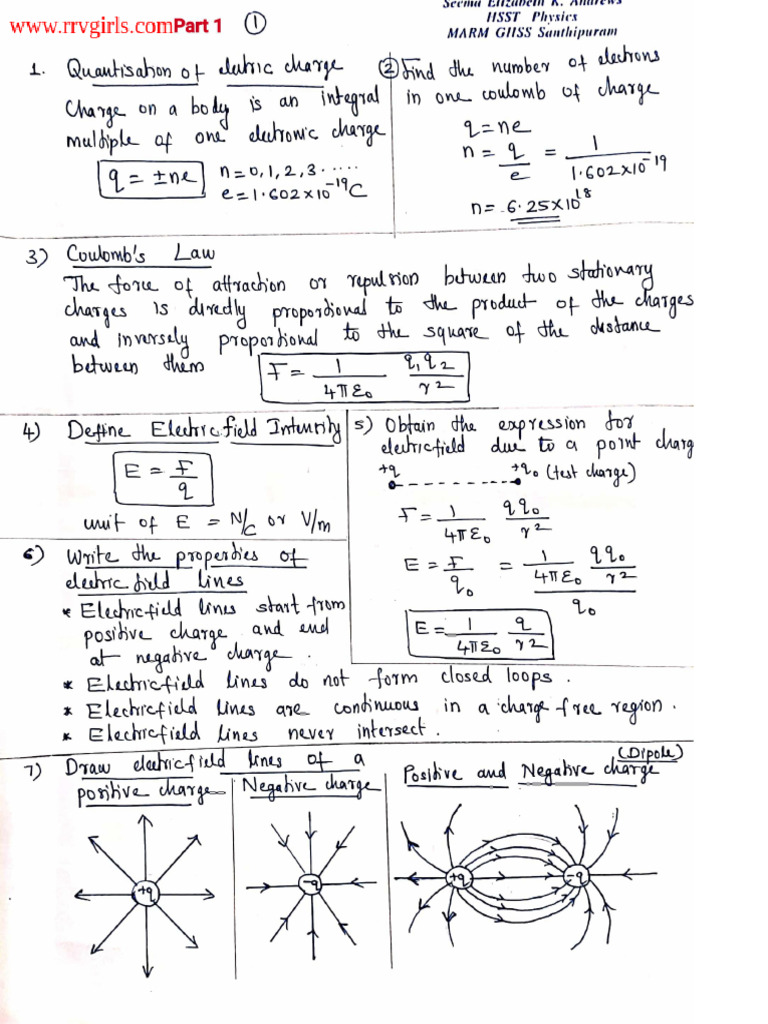 Seema Elizabeth K. Andrews
HSST Physics
MARM GHSS Santhipuram
www.rrvgirls.comPart 1 ①
1. Quantisation of eletric charge
Charge on a body is an integral
multiple of one electronic charge
q = ±ne n = 0, 1, 2, 3.....
e = 1.602 x 10⁻¹⁹ C
② Find the number of electrons
in one coulomb of charge
q = ne
n = q/e = 1/1.602x10⁻¹⁹
n = 6.25x10¹⁸
3) Coulomb's Law
The force of attraction or repulsion between two stationary
charges is diredly proportional to the product of the charges
and inversely proportional to the square of the distance
between them F = 1/4πε₀ q₁q₂/r²
4) Define Electric field Intensity
E = F/q
unit of E = N/C or V/m
5) Obtain the expression for
electricfield due to a point charg
+q +q₀ (test charge)
F = 1/4πε₀ qq₀/r²
E = F/q₀ = 1/4πε₀ qq₀/r² / q₀
E = 1/4πε₀ q/r²
6) Write the properties of
electric field lines
* Electricfield lines start from
positive charge and end
at negative charge.
* Electricfield lines do not form closed loops.
* Electricfield lines are continuous in a charge free region.
* Electricfield lines never intersect.
7) Draw electricfield lines of a
positive charge
Negative charge
Positive and Negative charge (Dipole)
+q
-q
+q -q